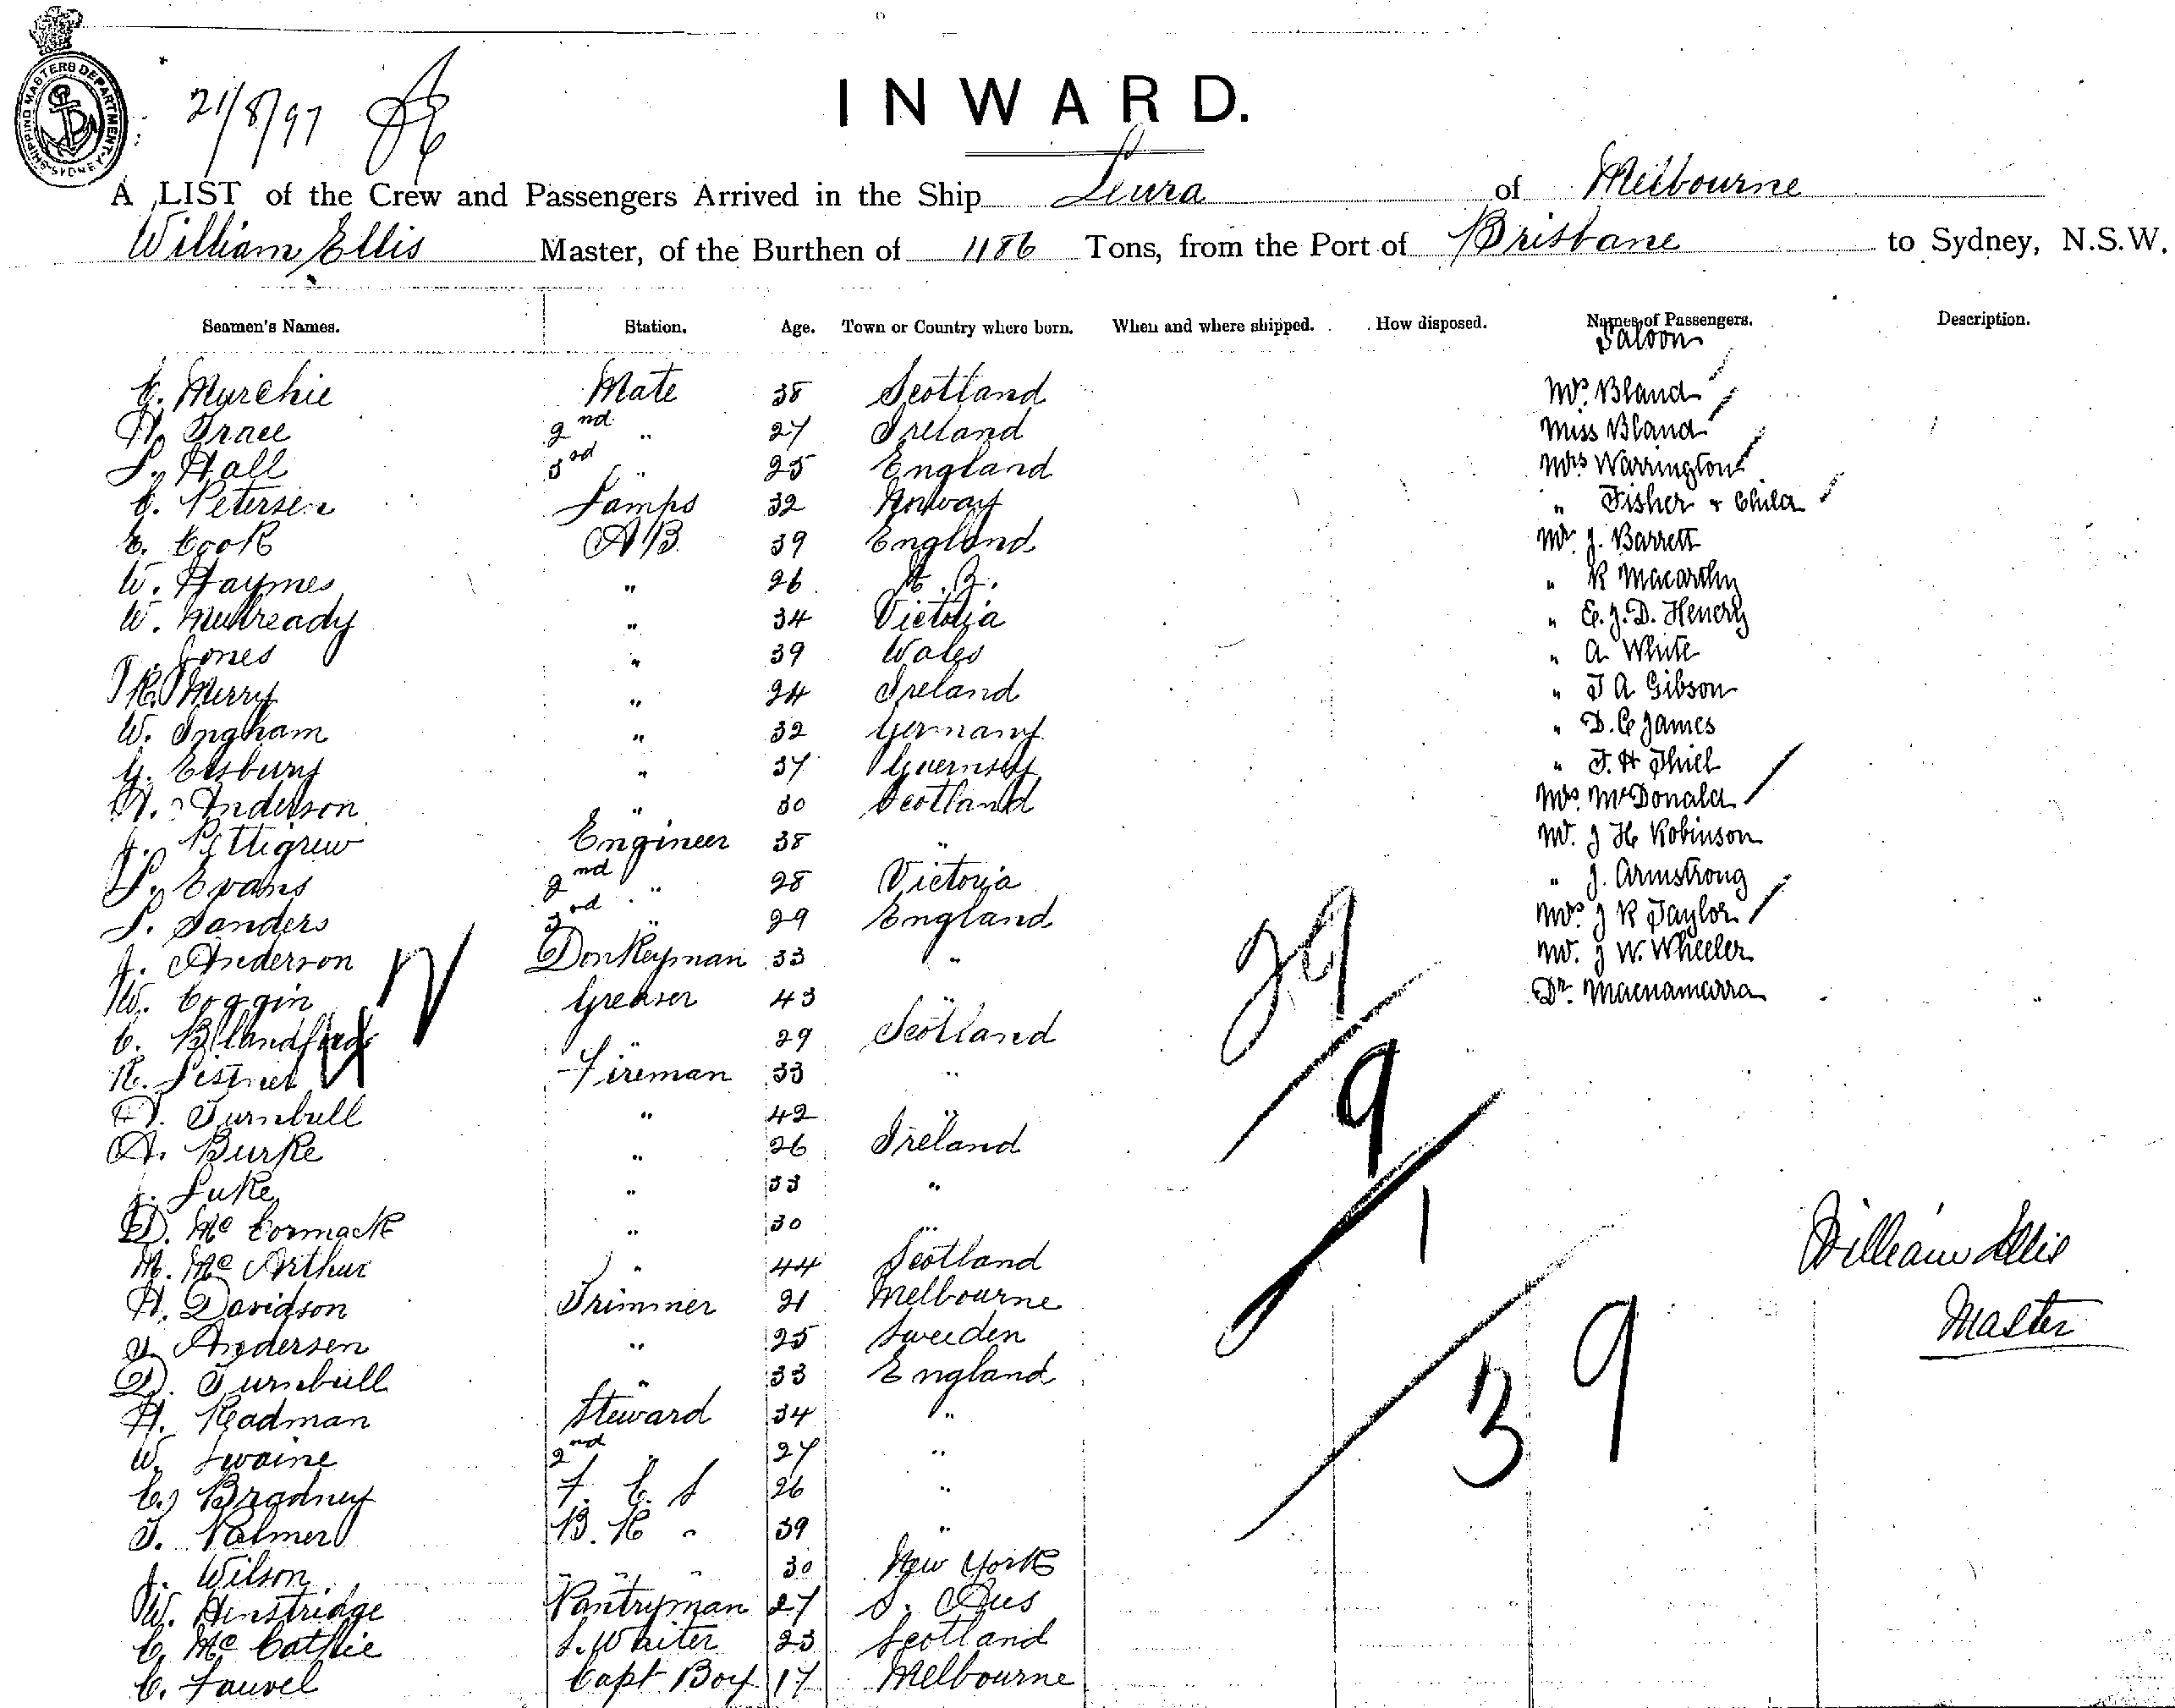 SHIPPING MASTERS DEPARTMENT. SYDNEY
21/8/97
INWARD.
A LIST of the Crew and Passengers Arrived in the Ship Leura of Melbourne
William Ellis Master, of the Burthen of 1186 Tons, from the Port of Brisbane to Sydney, N.S.W.
Seamen's Names. Station. Age. Town or Country where born. When and where shipped. How disposed. Names of Passengers. Description.
Saloon
C. Murchie Mate 38 Scotland Mrs. Bland
H. 2nd " 27 Ireland Miss Bland
S. Hall 3rd " 25 England Mrs Warrington
C. Petersen Lamps 32 Norway " Fisher & Child
E. Cook AB 39 England Mr. J. Barrett
W. Haymes " 26 N. Z. " R Macarthy
W. Mullready " 34 Victoria " E. J. D. Henery
Jones " 39 Wales " A White
R. Merry " 24 Ireland " J A Gibson
W. Ingham " 32 Germany " D. C James
G. " 37 Guernsey " F. H Thiel
A. Anderson " 30 Scotland Mrs. McDonald
J. Pettigrew Engineer 38 " Mr. J H Robinson
S. Evans 2nd " 28 Victoria " J. Armstrong
S. Sanders 3rd " 29 England Mrs J R Taylor
J. Anderson Donkeyman 33 " Mr. J W. Wheeler
W. Coggin Greaser 43 " Dr. Macnamarra
C. " 29 Scotland
R. Fireman 33 "
D. Turnbull " 42 "
A. Burke " 26 Ireland
J. Luke " 33 "
D. McCormack " 30 "
M. McArthur " 44 Scotland
H. Davidson Trimmer 21 Melbourne
Andersen " 25 Sweden
D. Turnbull " 33 England
H. Readman Steward 34 "
W. Swaine 2nd " 27 "
C. Bradney F. C. S 26 "
T. Palmer B. R " 39 "
J. Wilson " " " 30 New York
W. Hinstridge Pantryman 27 S. Aus
C. McCathie S. Waiter 23 Scotland
C. Fauvel Capt Boy 17 Melbourne
29
9
1
39
William Ellis
Master